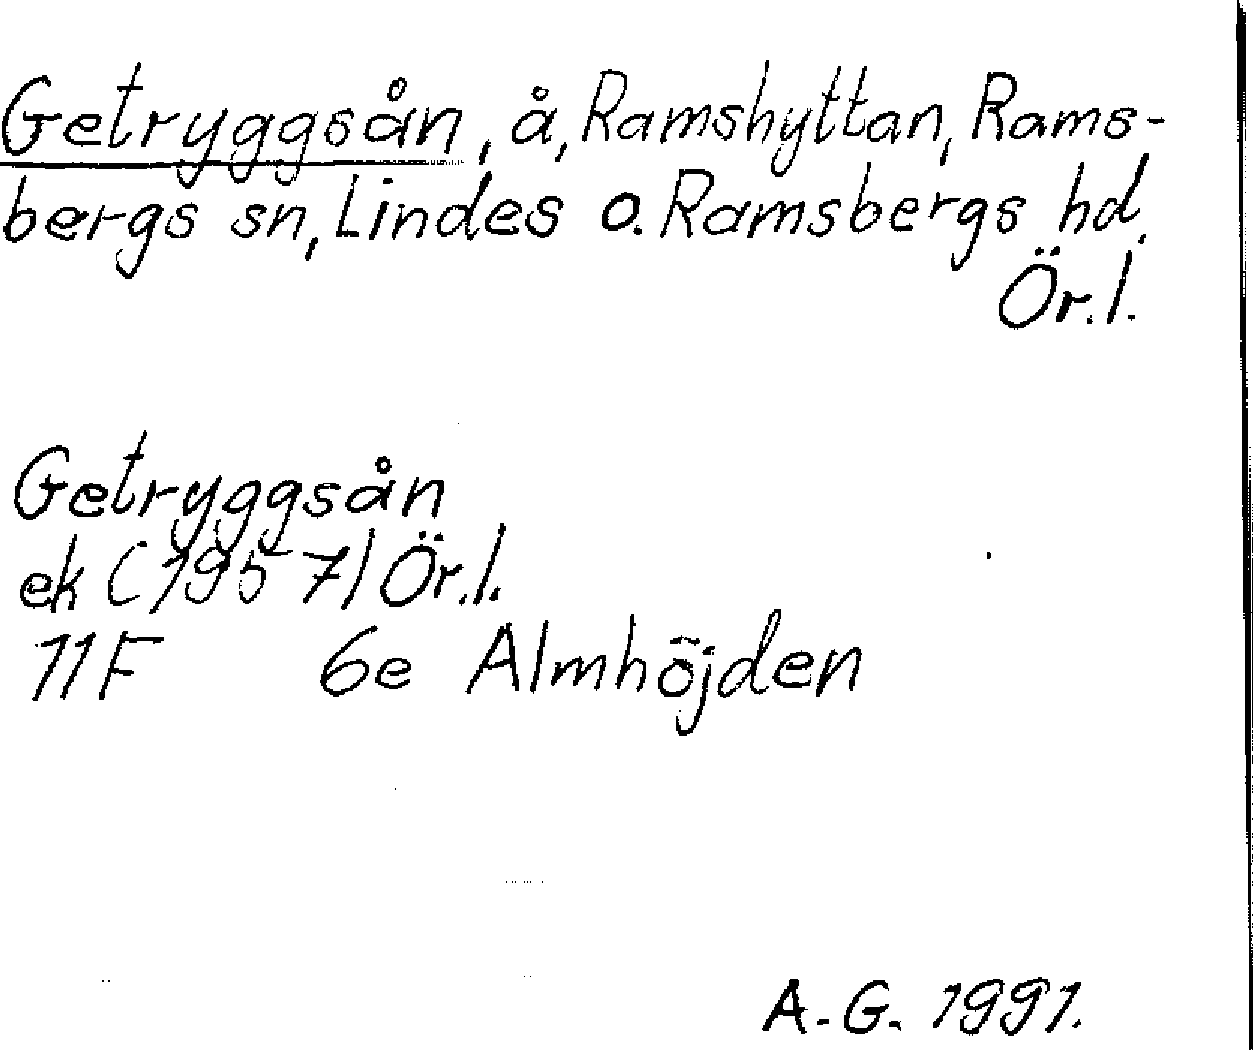 Getryggsån, å, Ramshyttan, Rams-
bergs sn, Lindes o. Ramsbergs hd,
Ör.l.
Getryggsån
ek (1957) Ör.l.
11F 6e Almhöjden
A.G. 1991.